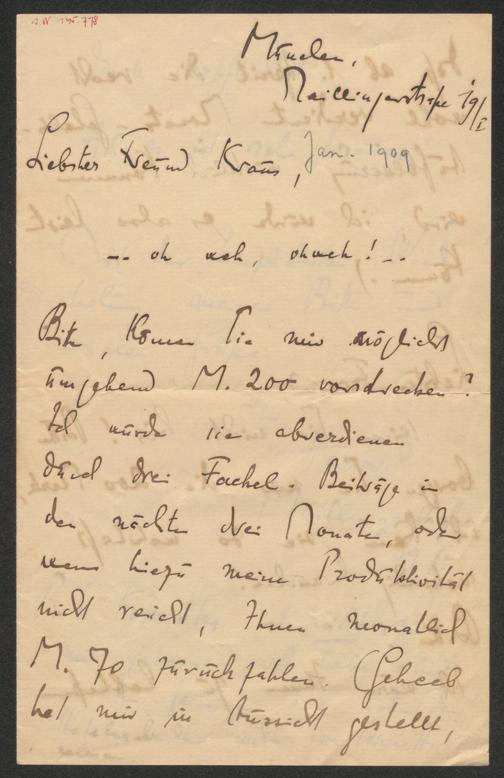 München,
Maillingerstraße 19/I
Liebster Freund Kraus, Jan. 1909
-- oh weh, ohweh! --
Bitte, können Sie mir möglichst
umgehend M. 200 vorstrecken?
Ich würde sie abverdienen
durch drei Fackel-Beiträge in
den nächsten drei Monaten, oder
wenn hiezu meine Produktivität
nicht reicht, Ihnen monatlich
M. 70 zurückzahlen. (Geheeb
hat mir in Aussicht gestellt,